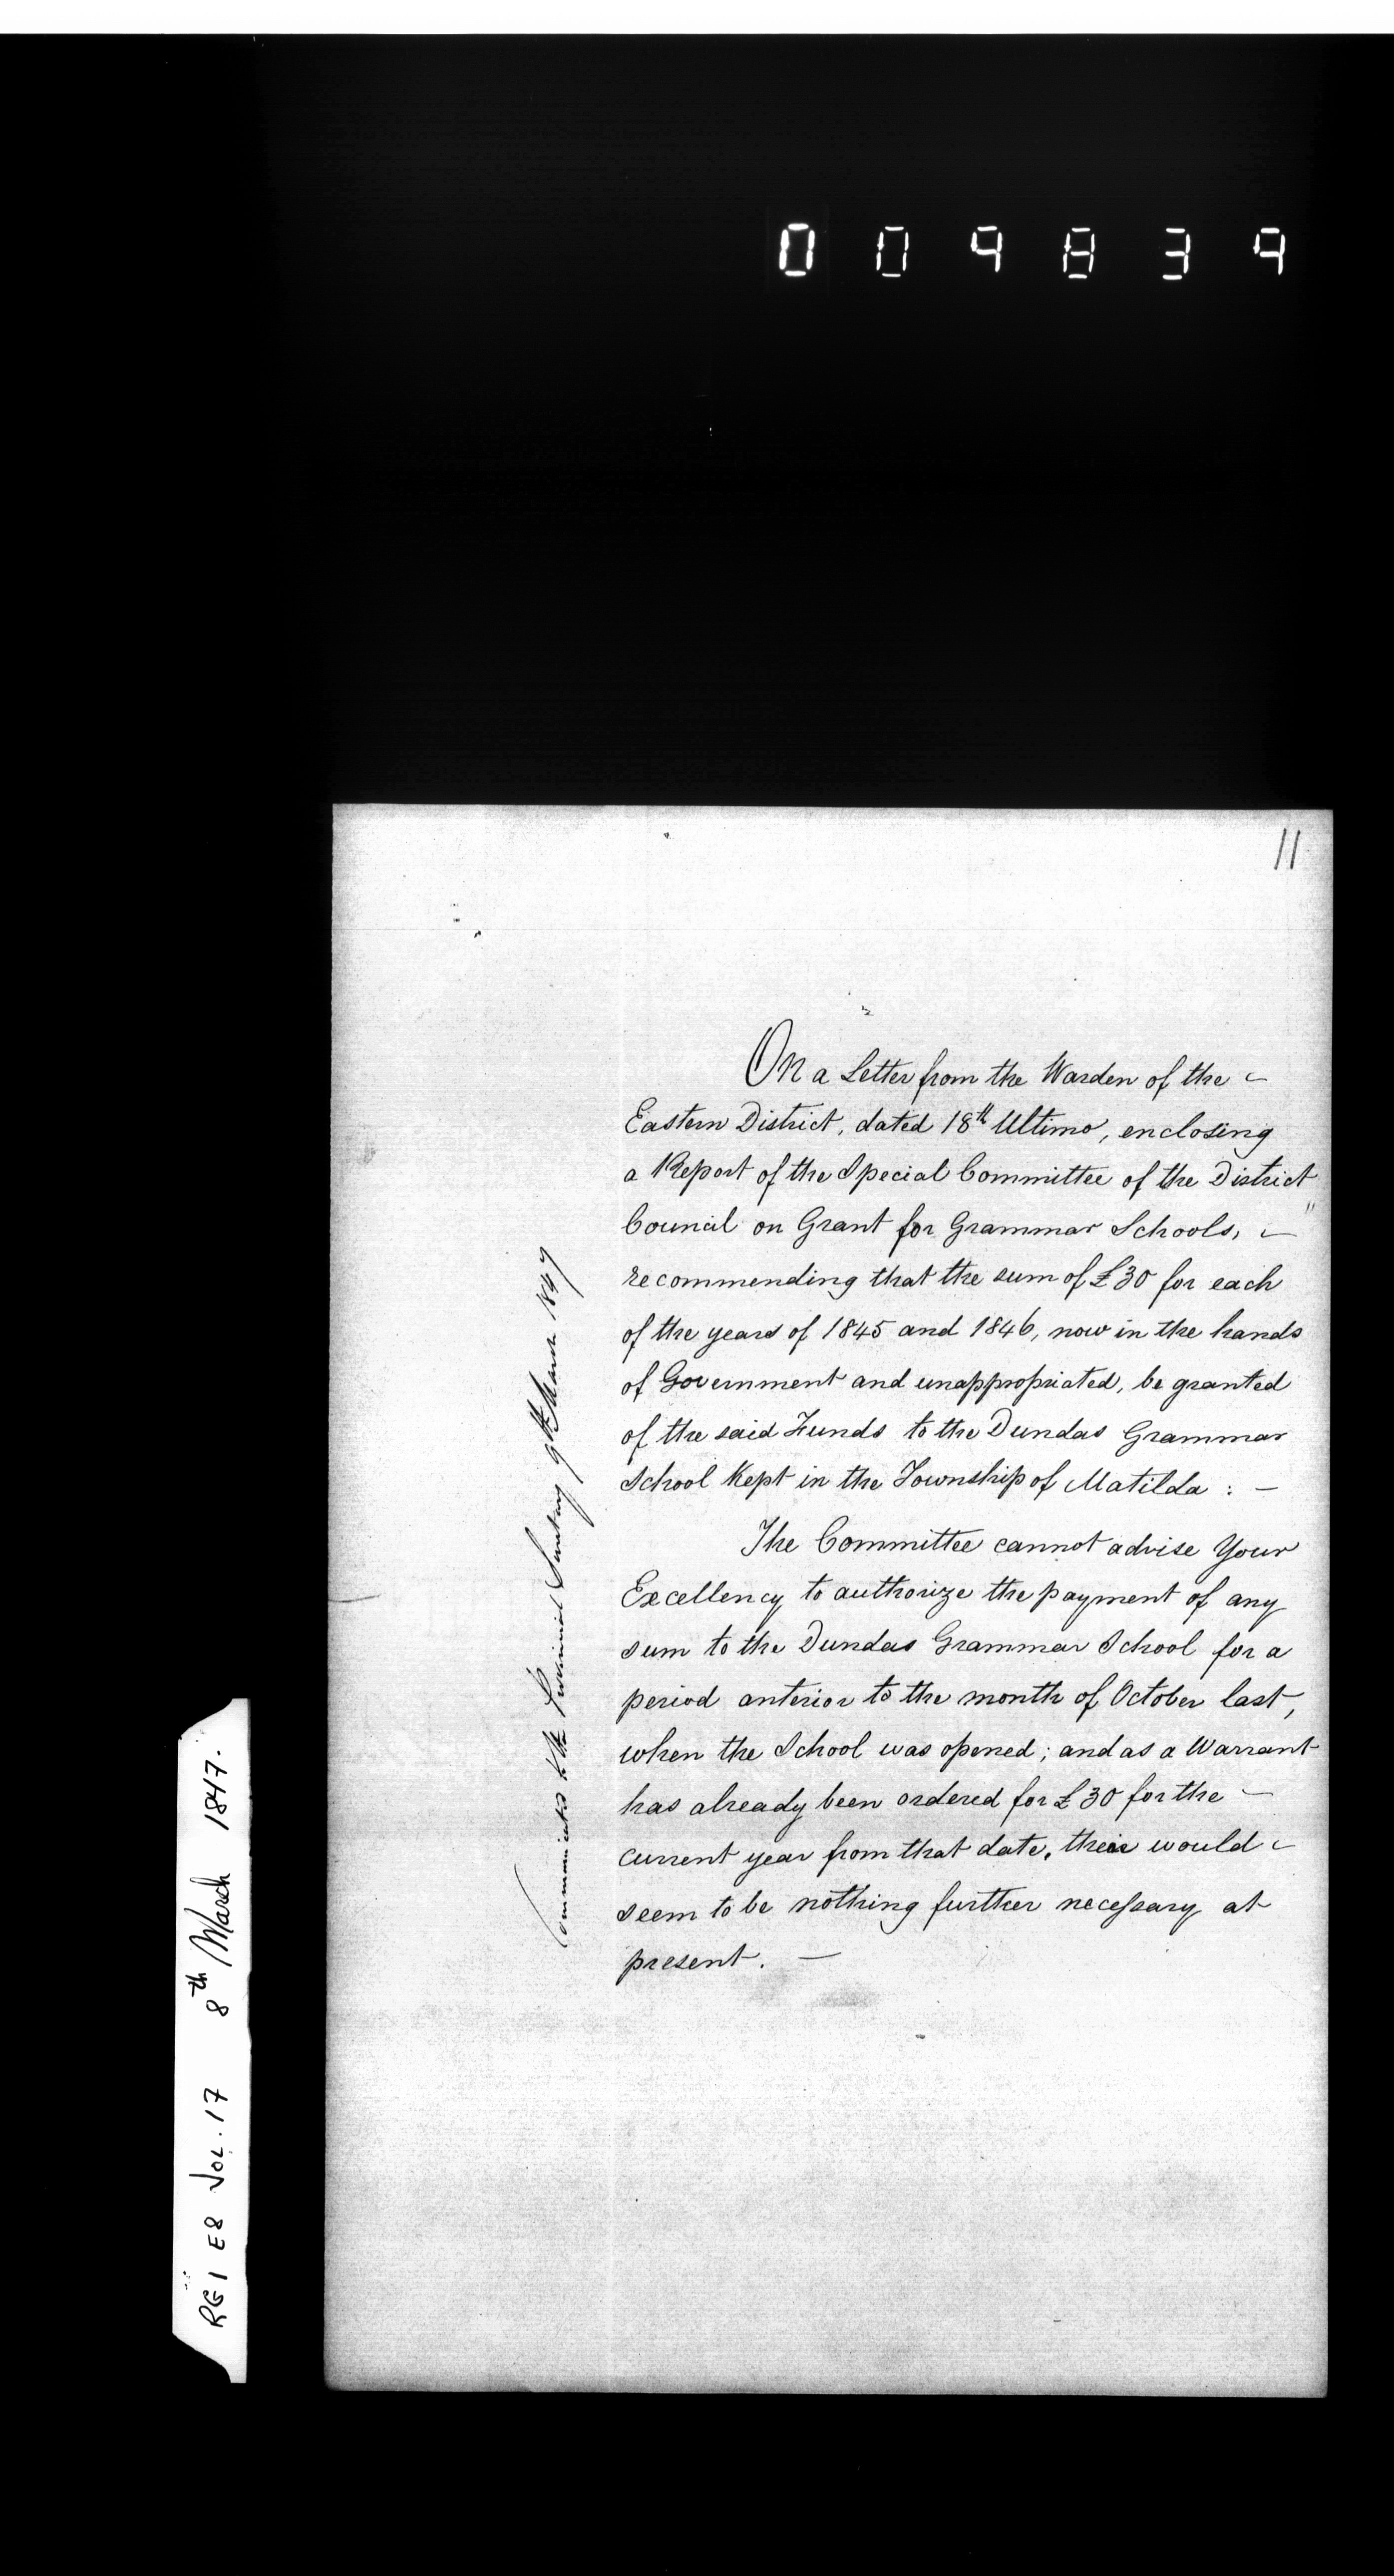 009839
11
On a Letter from the Warden of the
Eastern District, dated 18th Ultimo, enclosing
a Report of the Special Committee of the District
Council on Grant for Grammar Schools, "
recommending that the sum of £30 for each
of the years of 1845 and 1846, now in the hands
of Government and unappropriated, be granted
of the said Funds to the Dundas Grammar
School kept in the Township of Matilda : —
The Committee cannot advise Your
Excellency to authorize the payment of any
sum to the Dundas Grammar School for a
period anterior to the month of October last,
when the School was opened; and as a Warrant
has already been ordered for £30 for the —
current year from that date, their would
seem to be nothing further necessary at
present. —
Communicated to the Provincial Secretary 9th March 1847
RG1 E8 VOL. 17 8th March 1847.